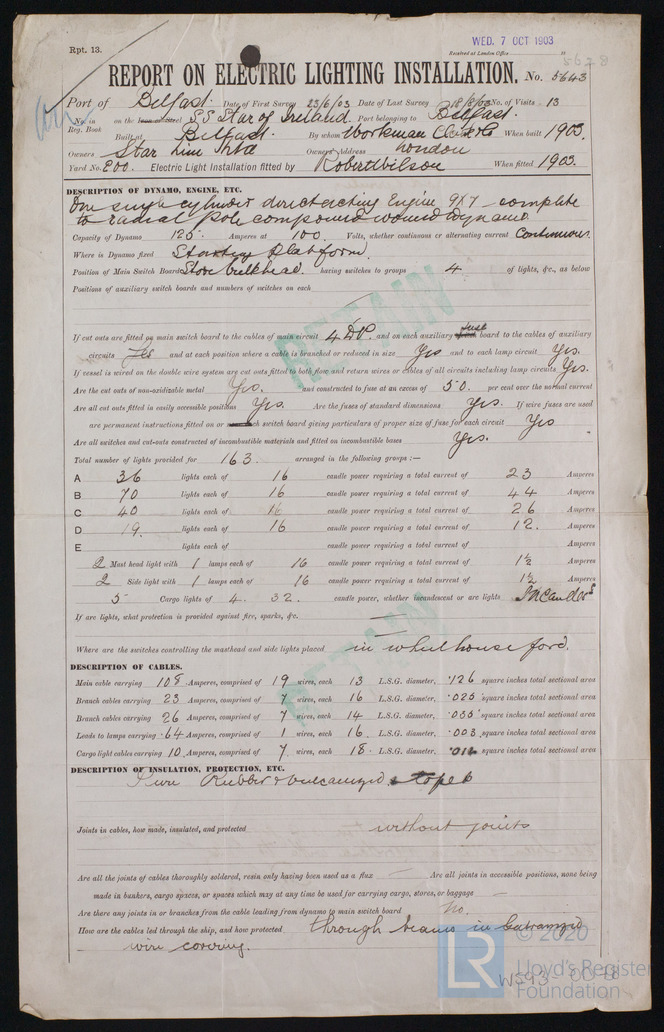 Rpt. 13.
WED. 7 OCT 1903
Received at London Office
5678
REPORT ON ELECTRIC LIGHTING INSTALLATION. No. 5643
Port of Belfast. Date of First Survey 23/6/03 Date of Last Survey 18/8/03 No. of Visits 13
No. in Reg. Book on the Iron or Steel SS Star of Ireland Port belonging to Belfast.
Built at Belfast. By whom Workman Clark & Co When built 1903.
Owners Star Line Ltd Owners' Address London
Yard No. 200. Electric Light Installation fitted by Robert Wilson When fitted 1903.
DESCRIPTION OF DYNAMO, ENGINE, ETC.
One single cylinder direct acting Engine 9x7 complete
to radial pole compound wound dynamo
Capacity of Dynamo 125 Amperes at 100 Volts, whether continuous or alternating current Continuous
Where is Dynamo fixed Starting Platform.
Position of Main Switch Board Stove bulkhead. having switches to groups 4 of lights, &c., as below
Positions of auxiliary switch boards and numbers of switches on each
If cut outs are fitted on main switch board to the cables of main circuit 4 DP. and on each auxiliary fuse board to the cables of auxiliary
circuits Yes and at each position where a cable is branched or reduced in size Yes and to each lamp circuit Yes.
If vessel is wired on the double wire system are cut outs fitted to both flow and return wires or cables of all circuits including lamp circuits Yes.
Are the cut outs of non-oxidizable metal Yes. and constructed to fuse at an excess of 50. per cent over the normal current
Are all cut outs fitted in easily accessible positions Yes. Are the fuses of standard dimensions Yes. If wire fuses are used
are permanent instructions fitted on or switch board giving particulars of proper size of fuse for each circuit Yes
Are all switches and cut-outs constructed of incombustible materials and fitted on incombustible bases Yes.
Total number of lights provided for 163. arranged in the following groups :—
A 36 lights each of 16 candle power requiring a total current of 23 Amperes
B 70 lights each of 16 candle power requiring a total current of 44 Amperes
C 40 lights each of 16 candle power requiring a total current of 26 Amperes
D 19. lights each of 16 candle power requiring a total current of 12. Amperes
E lights each of candle power requiring a total current of Amperes
2 Mast head light with 1 lamps each of 16 candle power requiring a total current of 1½ Amperes
2 Side light with 1 lamps each of 16 candle power requiring a total current of 1½ Amperes
5 Cargo lights of 4. 32. candle power, whether incandescent or arc lights Incandesc
If arc lights, what protection is provided against fire, sparks, &c.
Where are the switches controlling the masthead and side lights placed in wheelhouse ford.
DESCRIPTION OF CABLES.
Main cable carrying 108 Amperes, comprised of 19 wires, each 13 L.S.G. diameter, .126 square inches total sectional area
Branch cables carrying 23 Amperes, comprised of 7 wires, each 16 L.S.G. diameter, .025 square inches total sectional area
Branch cables carrying 26 Amperes, comprised of 7 wires, each 14 L.S.G. diameter, .035 square inches total sectional area
Leads to lamps carrying .64 Amperes, comprised of 1 wires, each 16. L.S.G. diameter, .003 square inches total sectional area
Cargo light cables carrying 10. Amperes, comprised of 7 wires, each 18. L.S.G. diameter, square inches total sectional area
DESCRIPTION OF INSULATION, PROTECTION, ETC.
Pure Rubber & vulcanized & taped
Joints in cables, how made, insulated, and protected without joints
Are all the joints of cables thoroughly soldered, resin only having been used as a flux Are all joints in accessible positions, none being
made in bunkers, cargo spaces, or spaces which may at any time be used for carrying cargo, stores, or baggage
Are there any joints in or branches from the cable leading from dynamo to main switch board No.
How are the cables led through the ship, and how protected through beams in Galvanized
wire covering.
RETAIN
RETAIN
LR © 2020
Lloyd's Register
Foundation
W593-0078